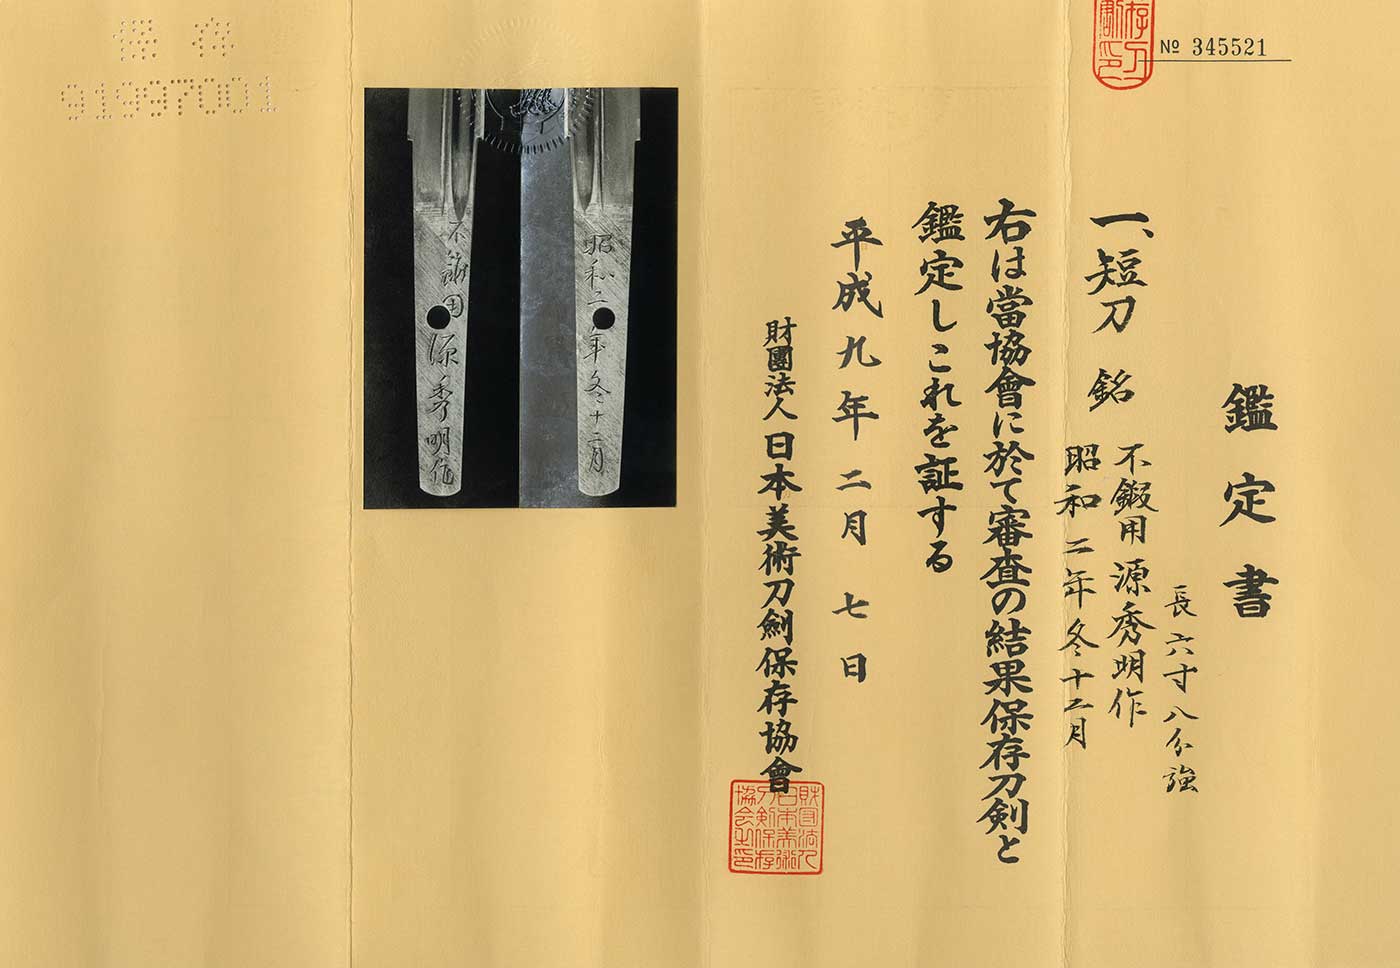 № 345521
鑑定書
長六寸八分強
一、短刀 銘 不鍛用源秀明作
昭和二年冬十二月
右は當協會に於て審査の結果保存刀剣と
鑑定しこれを証する
平成九年二月七日
財團法人日本美術刀剣保存協會
財団法人
日本美術
刀剣保存
協会之印
昭和二年冬十二月
不鍛用源秀明作
保存
91997001